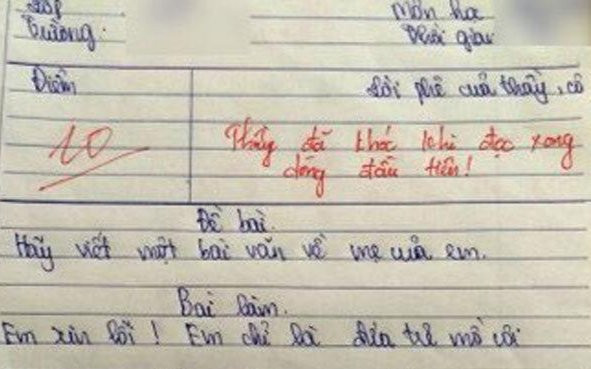 Lớp Môn học
Trường: Thời gian
Điểm Lời phê của thầy, cô
10 Thầy đã khóc khi đọc xong
dòng đầu tiên!
Đề bài.
Hãy viết một bài văn về mẹ của em.
Bài làm.
Em xin lỗi! Em chỉ là đứa trẻ mồ côi